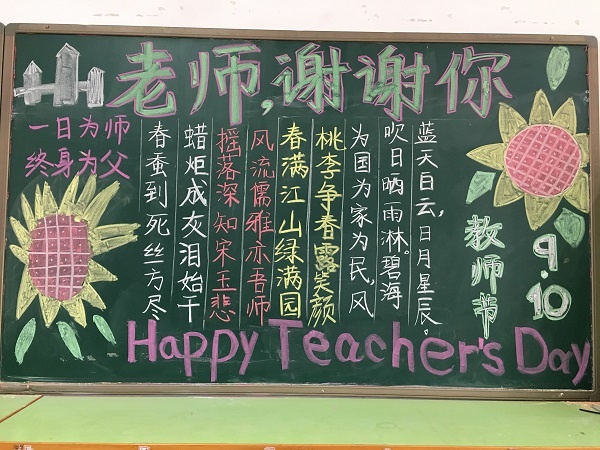 老师,谢谢你
一日为师
终身为父
春蚕到死丝方尽
蜡炬成灰泪始干
摇落深知宋玉悲
风流儒雅亦吾师
春满江山绿满园
桃李争春露笑颜
为国为家为民,风
吹日晒雨淋。碧海
蓝天白云,日月星辰。
教师节
9.10
Happy Teacher's Day